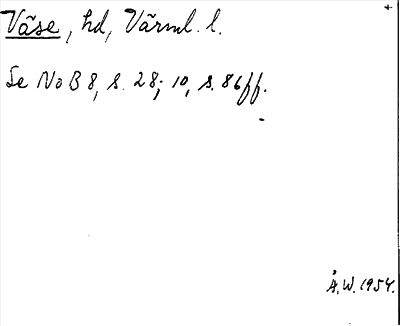 Väse, hd, Värml. l.
Se NoB 8, s. 28; 10, s. 86 ff.
Å.W. 1954.